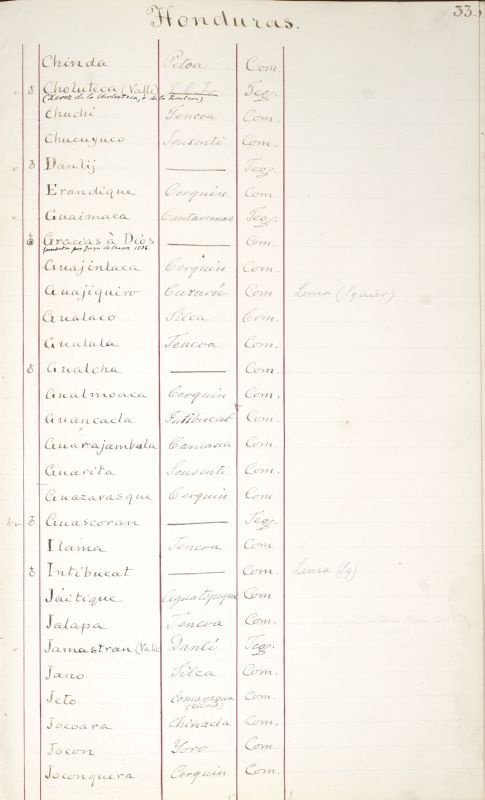 33.
Honduras.
Chinda Petoa Com.
Choluteca (Valle) Teg.
(Xerez de la Choluteca, ó de la Frontera)
Chuchi Tencoa Com.
Chucuyuco Sensenti Com.
Danlij — Teg.
Erandique Cerquin Com
Guaimaca Cantarranas Teg.
Gracias à Dios — Com.
1536.
Guajinlaca Cerquin Com.
Guajiquiro Cururú Com Lenca (Squier)
Gualaco Silca Com.
Gualala Tencoa Com.
Gualcha — Com.
Gualmoaca Cerquin Com.
Guancacla Intibucat Com.
Guarajambala Camasca Com.
Guarita Sensenti Com.
Guazarasque Cerquin Com
Guascoran — Teg.
Ilama Tencoa Com
Intibucat — Com. Lenca (Sq)
Jaitique Aguatepeque Com
Jalapa Tencoa Com.
Jamastran (Valle Danlí Teg.
Jano Silca Com.
Jeto Comayagua Com.
Jocoara Chinacla Com.
Jocon Yoro Com.
Joconquera Cerquin Com.